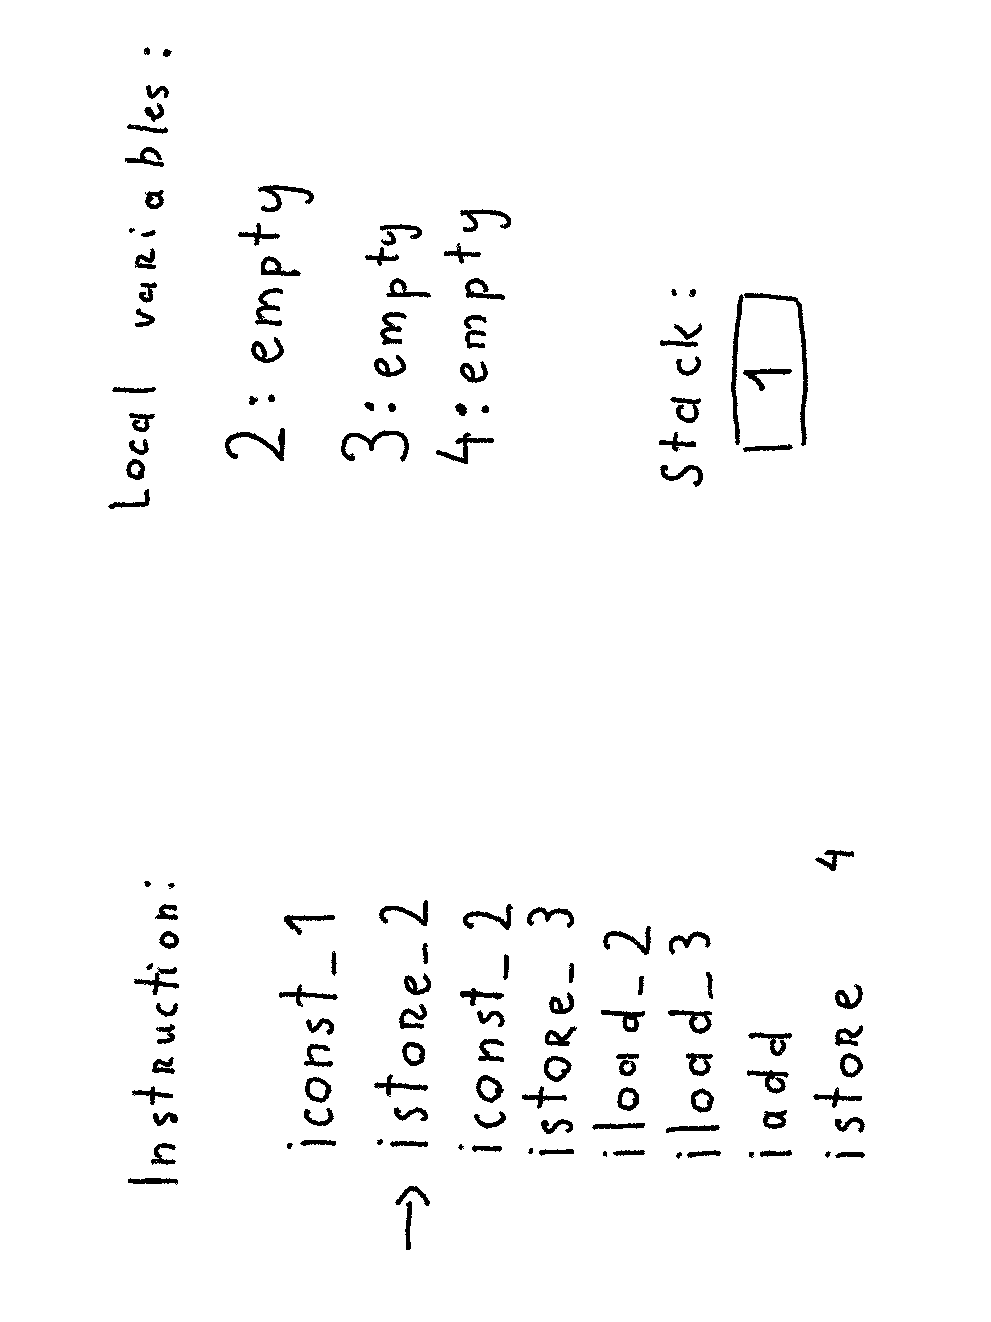 Instruction:
iconst_1
→ istore_2
iconst_2
istore_3
iload_2
iload_3
iadd
istore 4
Local variables:
2: empty
3: empty
4: empty
Stack:
1